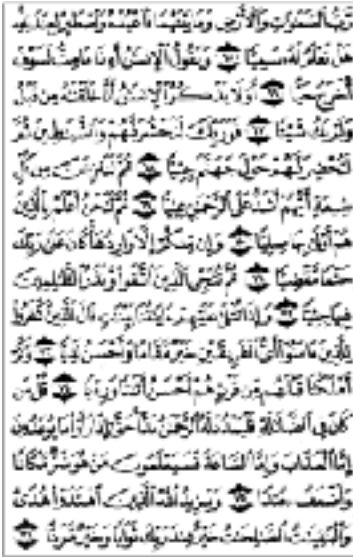 رَّبُّ ٱلسَّمَٰوَٰتِ وَٱلْأَرْضِ وَمَا بَيْنَهُمَا فَٱعْبُدْهُ وَٱصْطَبِرْ لِعِبَٰدَتِهِۦ
هَلْ تَعْلَمُ لَهُۥ سَمِيًّا ٦٥ وَيَقُولُ ٱلْإِنسَٰنُ أَءِذَا مَا مِتُّ لَسَوْفَ
أُخْرَجُ حَيًّا ٦٦ أَوَلَا يَذْكُرُ ٱلْإِنسَٰنُ أَنَّا خَلَقْنَٰهُ مِن قَبْلُ
وَلَمْ يَكُ شَيْـًٔا ٦٧ فَوَرَبِّكَ لَنَحْشُرَنَّهُمْ وَٱلشَّيَٰطِينَ ثُمَّ
لَنُحْضِرَنَّهُمْ حَوْلَ جَهَنَّمَ جِثِيًّا ٦٨ ثُمَّ لَنَنزِعَنَّ مِن كُلِّ
شِيعَةٍ أَيُّهُمْ أَشَدُّ عَلَى ٱلرَّحْمَٰنِ عِتِيًّا ٦٩ ثُمَّ لَنَحْنُ أَعْلَمُ بِٱلَّذِينَ
هُمْ أَوْلَىٰ بِهَا صِلِيًّا ٧٠ وَإِن مِّنكُمْ إِلَّا وَارِدُهَا كَانَ عَلَىٰ رَبِّكَ
حَتْمًا مَّقْضِيًّا ٧١ ثُمَّ نُنَجِّى ٱلَّذِينَ ٱتَّقَوا۟ وَّنَذَرُ ٱلظَّٰلِمِينَ
فِيهَا جِثِيًّا ٧٢ وَإِذَا تُتْلَىٰ عَلَيْهِمْ ءَايَٰتُنَا بَيِّنَٰتٍ قَالَ ٱلَّذِينَ كَفَرُوا۟
لِلَّذِينَ ءَامَنُوٓا۟ أَىُّ ٱلْفَرِيقَيْنِ خَيْرٌ مَّقَامًا وَأَحْسَنُ نَدِيًّا ٧٣ وَكَمْ
أَهْلَكْنَا قَبْلَهُم مِّن قَرْنٍ هُمْ أَحْسَنُ أَثَٰثًا وَرِءْيًا ٧٤ قُلْ مَن
كَانَ فِى ٱلضَّلَٰلَةِ فَلْيَمْدُدْ لَهُ ٱلرَّحْمَٰنُ مَدًّا حَتَّىٰٓ إِذَا رَأَوْا۟ مَا يُوعَدُونَ
إِمَّا ٱلْعَذَابَ وَإِمَّا ٱلسَّاعَةَ فَسَيَعْلَمُونَ مَنْ هُوَ شَرٌّ مَّكَانًا
وَأَضْعَفُ جُندًا ٧٥ وَيَزِيدُ ٱللَّهُ ٱلَّذِينَ ٱهْتَدَوْا۟ هُدًى
وَٱلْبَٰقِيَٰتُ ٱلصَّٰلِحَٰتُ خَيْرٌ عِندَ رَبِّكَ ثَوَابًا وَخَيْرٌ مَّرَدًّا ٧٦